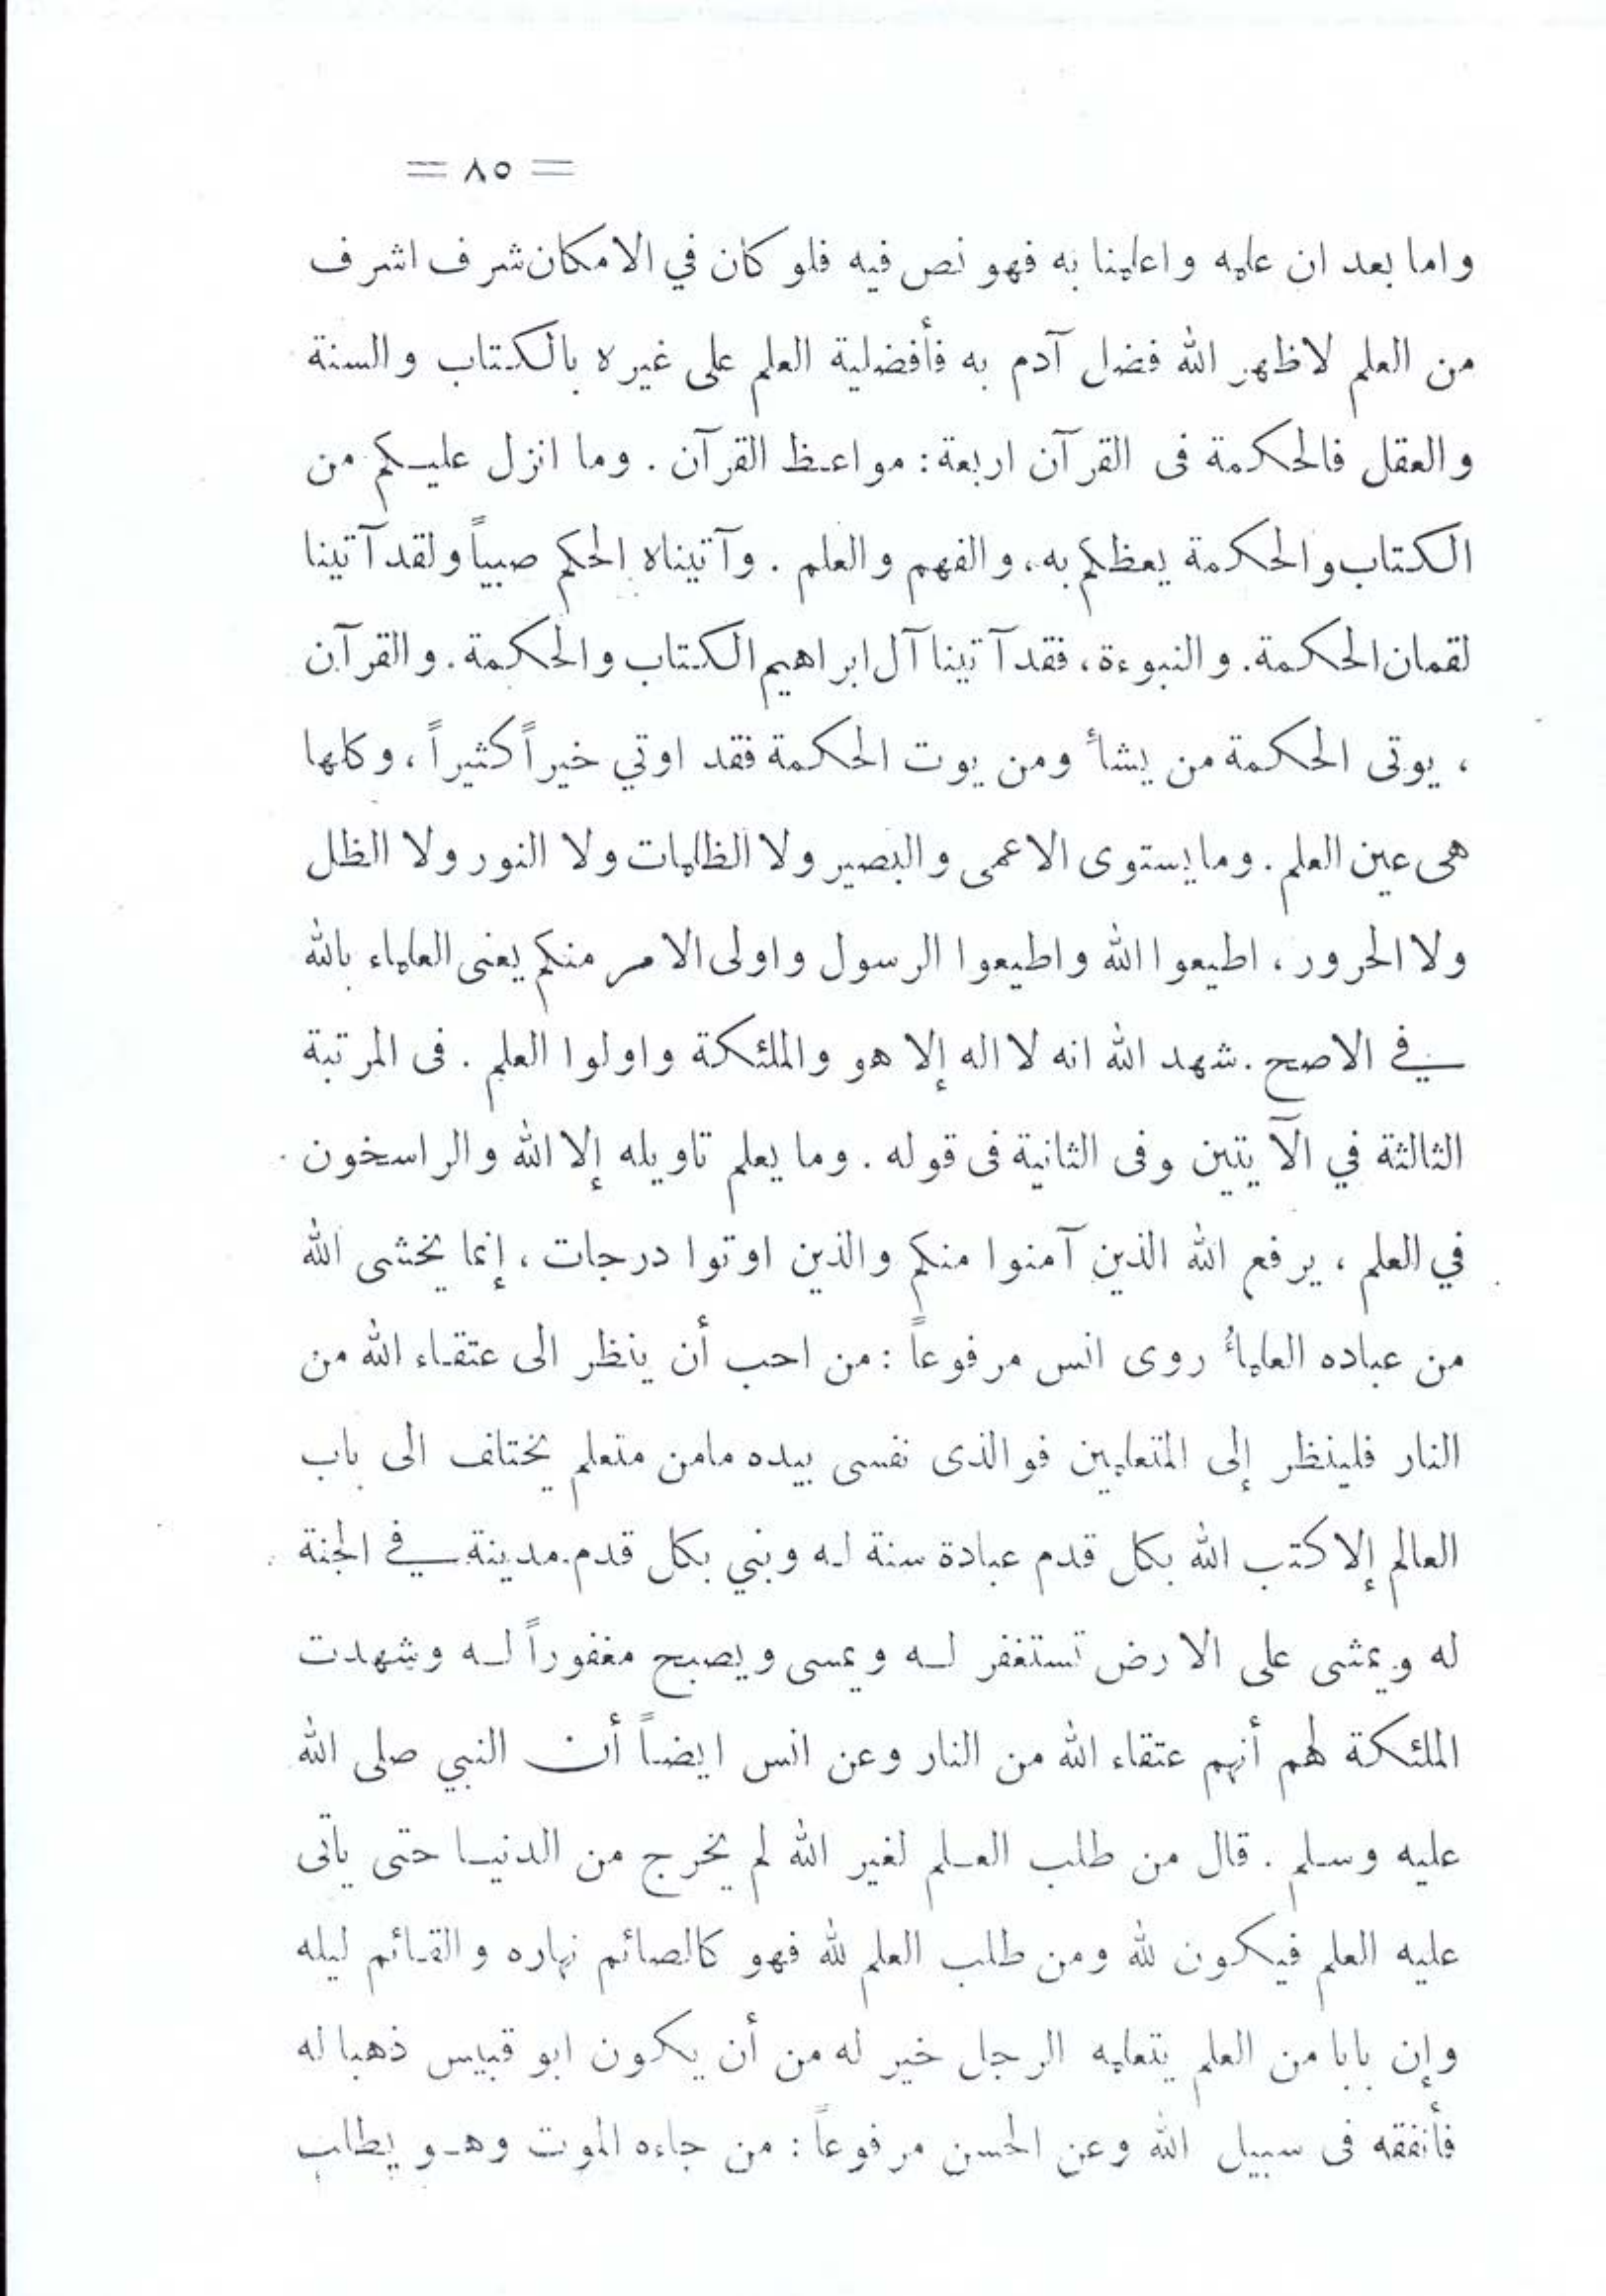 = ٨٥ =
واما بعد ان علمه واعلمنا به فهو نص فيه فلو كان في الامكان شرف اشرف
من العلم لاظهر الله فضل آدم به فأفضلية العلم على غيره بالكتاب والسنة
والعقل فالحكمة فى القرآن اربعة: مواعظ القرآن . وما انزل عليكم من
الكتاب والحكمة يعظكم به، والفهم والعلم . وآتيناه الحكم صبياً ولقد آتينا
لقمان الحكمة. والنبوءة، فقد آتينا آل ابراهيم الكتاب والحكمة. والقرآن
، يوتى الحكمة من يشأ ومن يوت الحكمة فقد اوتي خيراً كثيراً ، وكلها
هى عين العلم . وما يستوى الاعمى والبصير ولا الظلمات ولا النور ولا الظل
ولا الحرور ، اطيعوا الله واطيعوا الرسول واولى الامر منكم يعنى العلماء بالله
في الاصح . شهد الله انه لا اله إلا هو والملئكة واولوا العلم . فى المرتبة
الثالثة في الآيتين وفى الثانية فى قوله . وما يعلم تاويله إلا الله والراسخون
في العلم ، يرفع الله الذين آمنوا منكم والذين اوتوا درجات ، إنما يخشى الله
من عباده العلمأُ روى انس مرفوعاً : من احب أن ينظر الى عتقاء الله من
النار فلينظر إلى المتعلمين فوالذى نفسى بيده مامن متعلم يختلف الى باب
العالم إلا كتب الله بكل قدم عبادة سنة له وبني بكل قدم مدينة في الجنة
له ويمشى على الارض تستغفر له ويمسى ويصبح مغفوراً له وشهدت
الملئكة لهم أنهم عتقاء الله من النار وعن انس ايضاً أن النبي صلى الله
عليه وسلم . قال من طلب العلم لغير الله لم يخرج من الدنيا حتى يأتى
عليه العلم فيكون لله ومن طلب العلم لله فهو كالصائم نهاره والقائم ليله
وإن بابا من العلم يتعلمه الرجل خير له من أن يكون ابو قبيس ذهبا له
فأنفقه فى سبيل الله وعن الحسن مرفوعاً : من جاءه الموت وهو يطلب